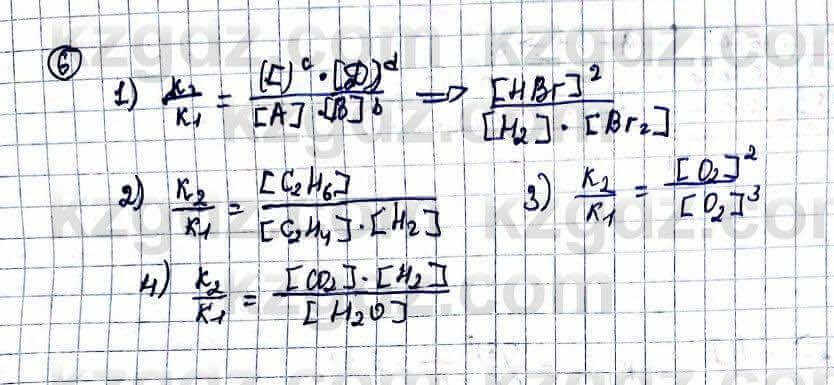 6
1) K2/K1 = [C]^c · [D]^d / [A] · [B]^b => [HBr]^2 / [H2] · [Br2]
2) K2/K1 = [C2H6] / [C2H4] · [H2]
3) K2/K1 = [O2]^2 / [O2]^3
4) K2/K1 = [CO2] · [H2] / [H2O]
kzgdz.com